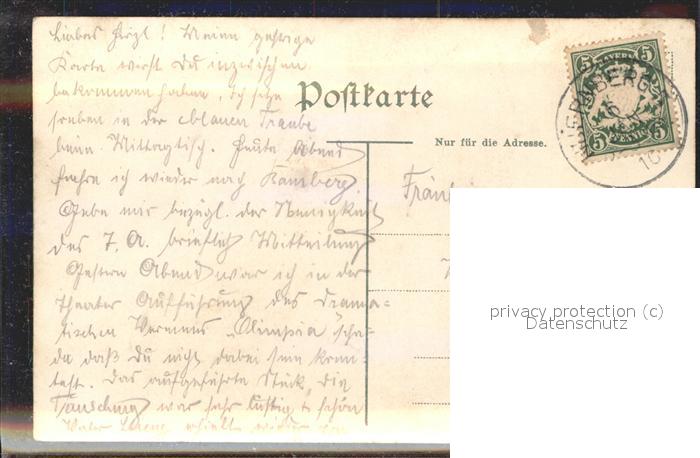 Liebes Herzl! Meine gestrige
Karte wirst Du inzwischen
bekommen haben, ich sitze
soeben in der blauen Traube
beim Mittagtisch. Heute Abend
fahre ich wieder nach Bamberg.
Gebe mir bezügl. der Neuigkeit
des F. A. brieflich Mitteilung
Gestern Abend war ich in der
Theater Aufführung des Drama-
tischen Vereins „Olimpia" scha-
de daß Du nicht dabei sein konn-
test. Das aufgeführte Stück, die
Täuschung war sehr lustig & schön
Postkarte
Nur für die Adresse.
5 BAYERN 5
5 PFENNIG 5
privacy protection (c)
Datenschutz